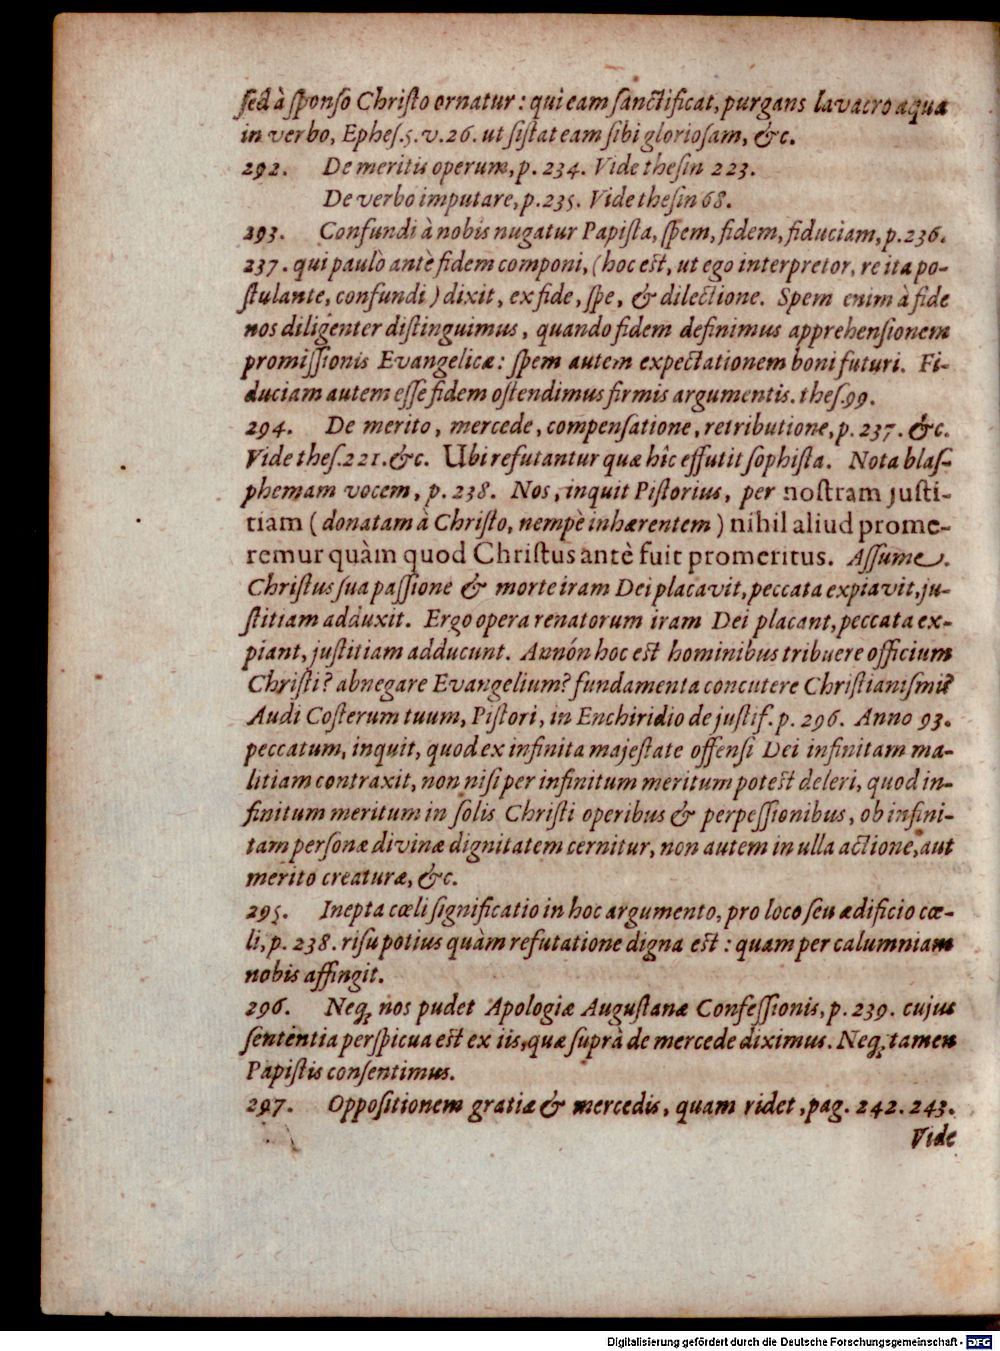 sed à sponso Christo ornatur: qui eam sanctificat, purgans lavacro aquæ
in verbo, Ephes.5.v.26. ut sistat eam sibi gloriosam, &c.
292. De meritis operum, p. 234. Vide thesin 223.
De verbo imputare, p.235. Vide thesin 68.
293. Confundi à nobis nugatur Papista, spem, fidem, fiduciam, p.236.
237. qui paulò antè fidem componi, (hoc est, ut ego interpretor, re ita po-
stulante, confundi) dixit, ex fide, spe, & dilectione. Spem enim à fide
nos diligenter distinguimus, quando fidem definimus apprehensionem
promissionis Evangelicæ: spem autem expectationem boni futuri. Fi-
duciam autem esse fidem ostendimus firmis argumentis. thes.99.
294. De merito, mercede, compensatione, retributione, p. 237. &c.
Vide thes.221.&c. Ubi refutantur quæ hîc effutit sophista. Nota blas-
phemam vocem, p. 238. Nos, inquit Pistorius, per nostram justi-
tiam (donatam à Christo, nempè inhærentem) nihil aliud prome-
remur quàm quod Christus antè fuit promeritus. Assume.
Christus sua passione & morte iram Dei placavit, peccata expiavit, ju-
stitiam adduxit. Ergo opera renatorum iram Dei placant, peccata ex-
piant, justitiam adducunt. Annón hoc est hominibus tribuere officium
Christi? abnegare Evangelium? fundamenta concutere Christianismi?
Audi Costerum tuum, Pistori, in Enchiridio de justif. p. 296. Anno 93.
peccatum, inquit, quod ex infinita majestate offensi Dei infinitam ma-
litiam contraxit, non nisi per infinitum meritum potest deleri, quod in-
finitum meritum in solis Christi operibus & perpessionibus, ob infini-
tam personæ divinæ dignitatem cernitur, non autem in ulla actione, aut
merito creaturæ, &c.
295. Inepta cœli significatio in hoc argumento, pro loco seu ædificio cœ-
li, p. 238. risu potius quàm refutatione digna est: quam per calumniam
nobis affingit.
296. Neq; nos pudet Apologiæ Augustanæ Confessionis, p. 239. cujus
sententia perspicua est ex iis, quæ suprà de mercede diximus. Neq; tamen
Papistis consentimus.
297. Oppositionem gratiæ & mercedis, quam ridet, pag. 242. 243.
Vide
Digitalisierung gefördert durch die Deutsche Forschungsgemeinschaft - DFG